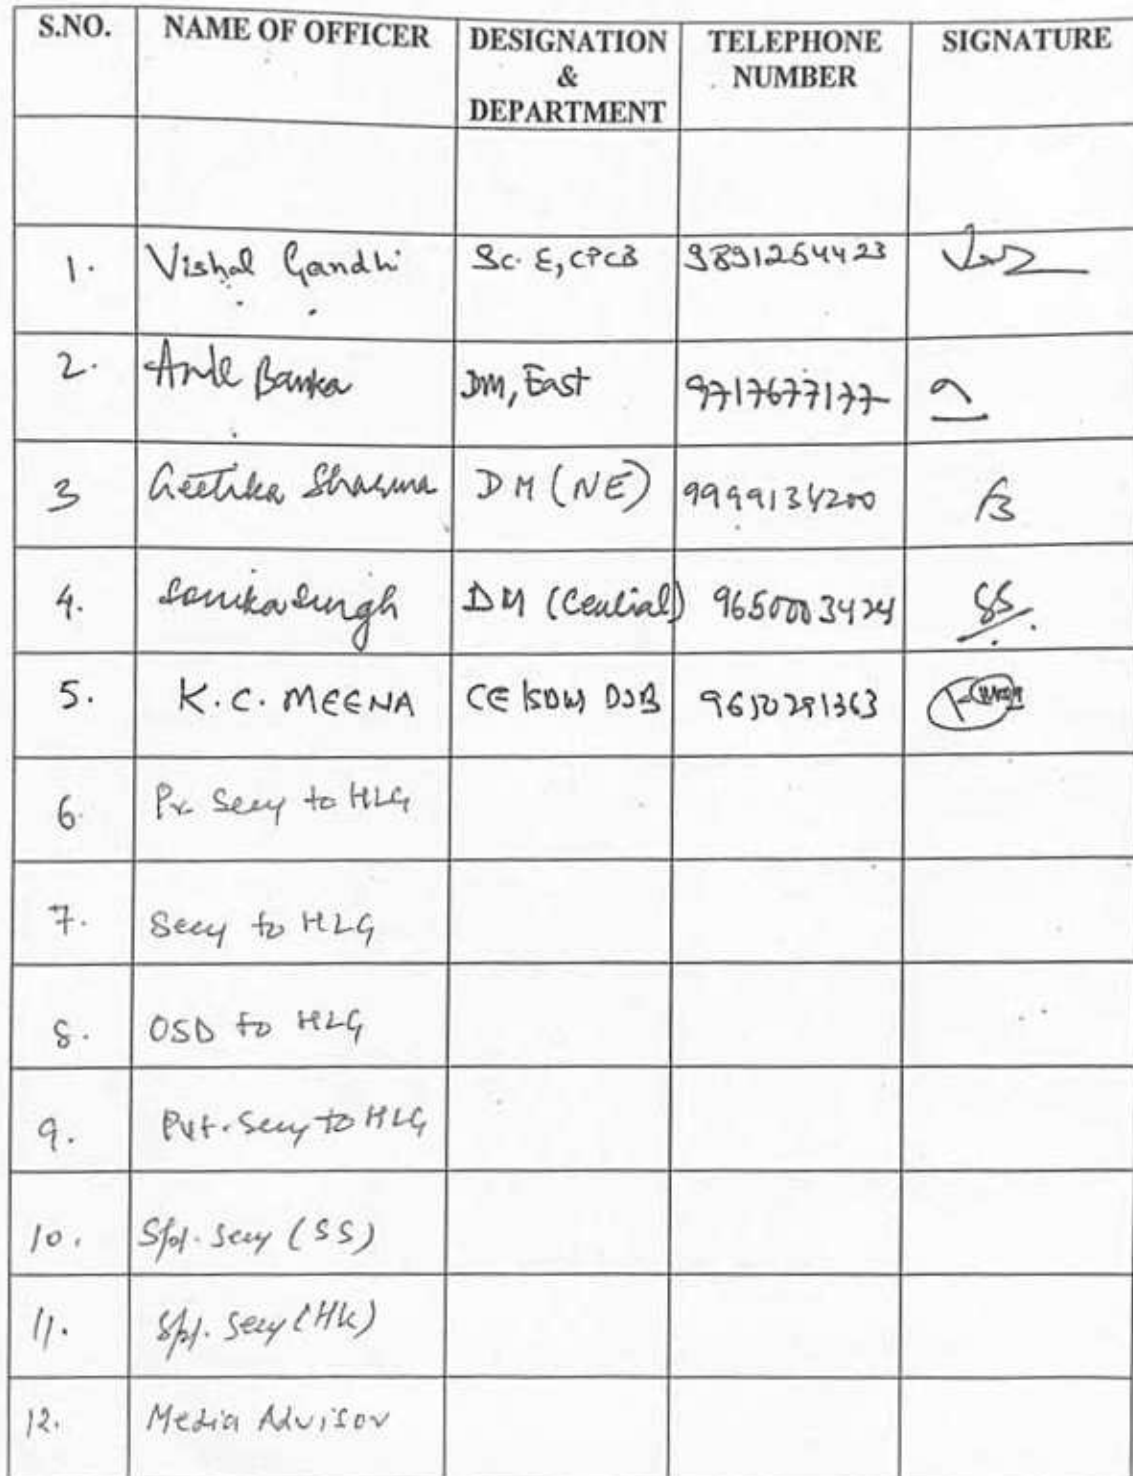 S.NO. NAME OF OFFICER DESIGNATION & DEPARTMENT TELEPHONE NUMBER SIGNATURE
1. Vishal Gandhi Sc. E, CPCB 9891264423
2. Anil Banka DM, East 9717677177
3 Geetika Sharma DM (NE) 9999134200
4. Sonika Singh DM (Central) 9650003424 SS
5. K.C. MEENA CE DJB 9650291363
6. Pr. Secy to HLG
7. Secy to HLG
8. OSD to HLG
9. Pvt. Secy to HLG
10. Spl. Secy (SS)
11. Spl. Secy (HK)
12. Media Advisor